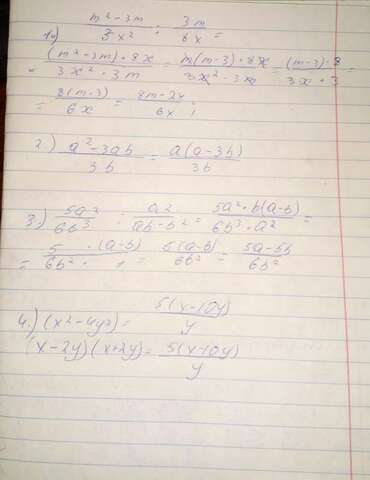 1.) (m² - 3m)/(3x²) : (3m)/(8x) =
= ((m² - 3m) · 8x)/(3x² · 3m) = (m(m-3) · 8x)/(3x² · 3m) = ((m-3) · 8)/(3x · 3) =
= (8(m-3))/(6x) = (8m - 24)/(6x) ;
2.) (a² - 3ab)/(3b) = (a(a-3b))/(3b)
3.) (5a²)/(6b³) : (a²)/(ab - b²) = (5a² · b(a-b))/(6b³ · a²) =
= (5 · (a-b))/(6b² · ) = (5(a-b))/(6b²) = (5a - 5b)/(6b²)
4.) (x² - 4y²) = (5(x-10y))/y
(x - 2y)(x+2y) = (5(x-10y))/y